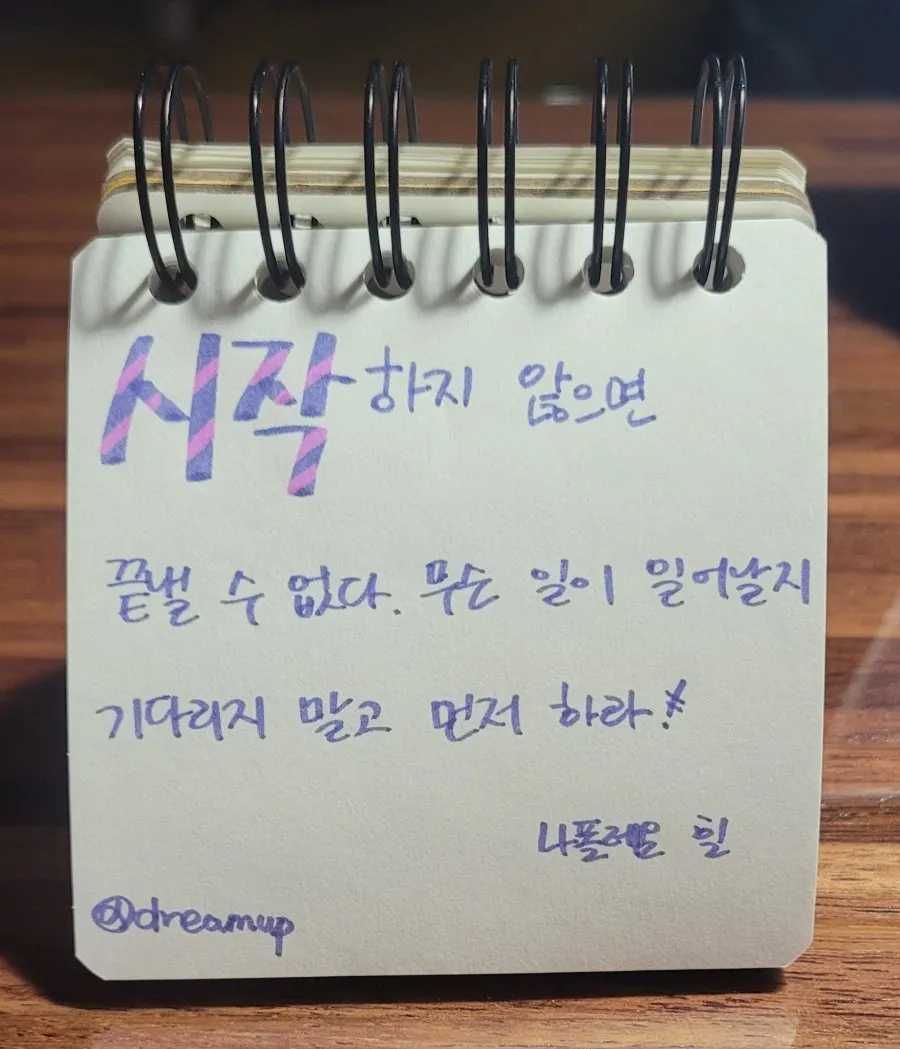 시작하지 않으면
끝낼 수 없다. 무슨 일이 일어날지
기다리지 말고 먼저 하라!
나폴레온 힐
@dreamup